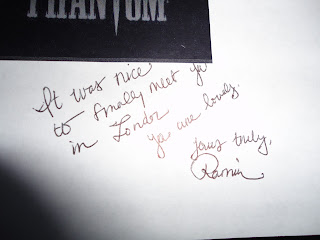 PHANTOM
It was nice
to finally meet ya
in London
Ya are lovely.
Yours truly,
Ramin